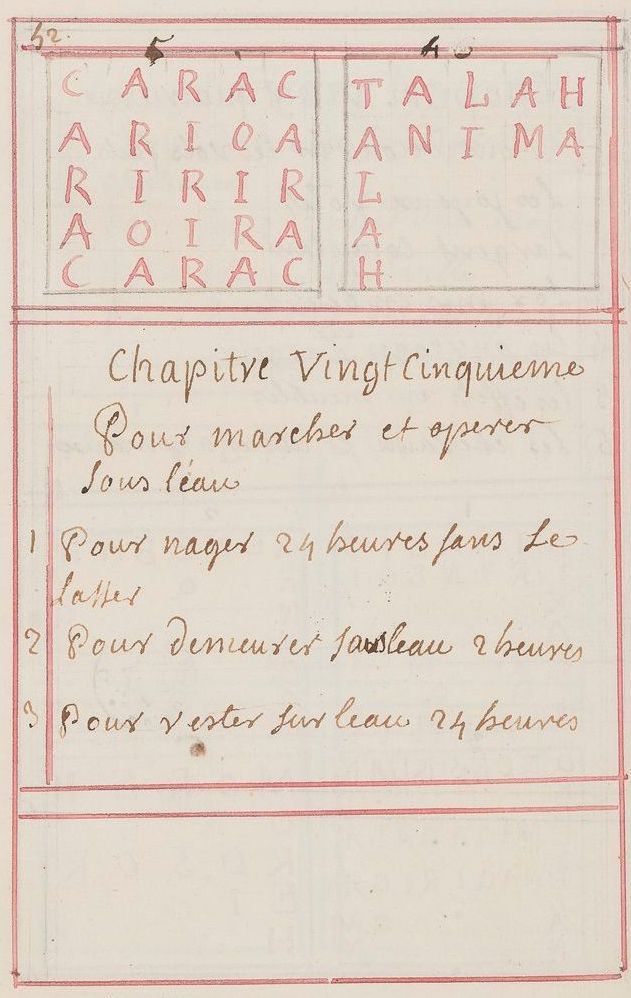 52.
5
C A R A C
A R I O A
R I R I R
A O I R A
C A R A C
6
T A L A H
A N I M A
L
A
H
Chapitre Vingt Cinquieme
Pour marcher et operer
sous l'eau
1 Pour nager 24 heures sans se
lasser
2 Pour demeurer sous leau 2 heures
3 Pour rester sur leau 24 heures